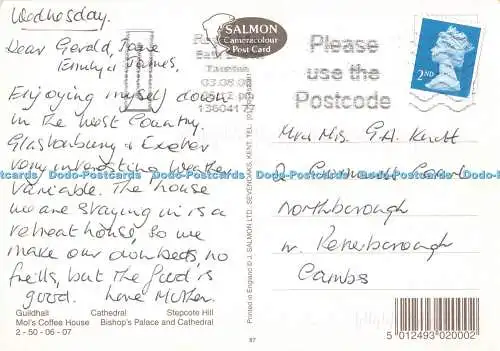 Wednesday.
Dear Gerald, Jane
Emily & James.
Enjoying myself down
in the West Country.
Glastonbury & Exeter
very interesting weather
variable. The house
we are staying in is a
retreat house, so we
make our own beds, no
frills, but the food is
good. Love Mother.
Guildhall Cathedral Stepcote Hill
Mol's Coffee House Bishop's Palace and Cathedral
2 - 50 - 06 - 07
SALMON
Cameracolour
Post Card
Taunton
03.08.0
13604177
Please
use the
Postcode
2ND
Printed in England © J. SALMON LTD., SEVENOAKS, KENT. TEL.
87
Mr & Mrs. G.H.
2
Northborough
nr. Peterborough
Cambs
5 012493 020002
Dodo-Postcards Dodo-Postcards Dodo-Postcards Dodo-Postcards Dodo-Postcards